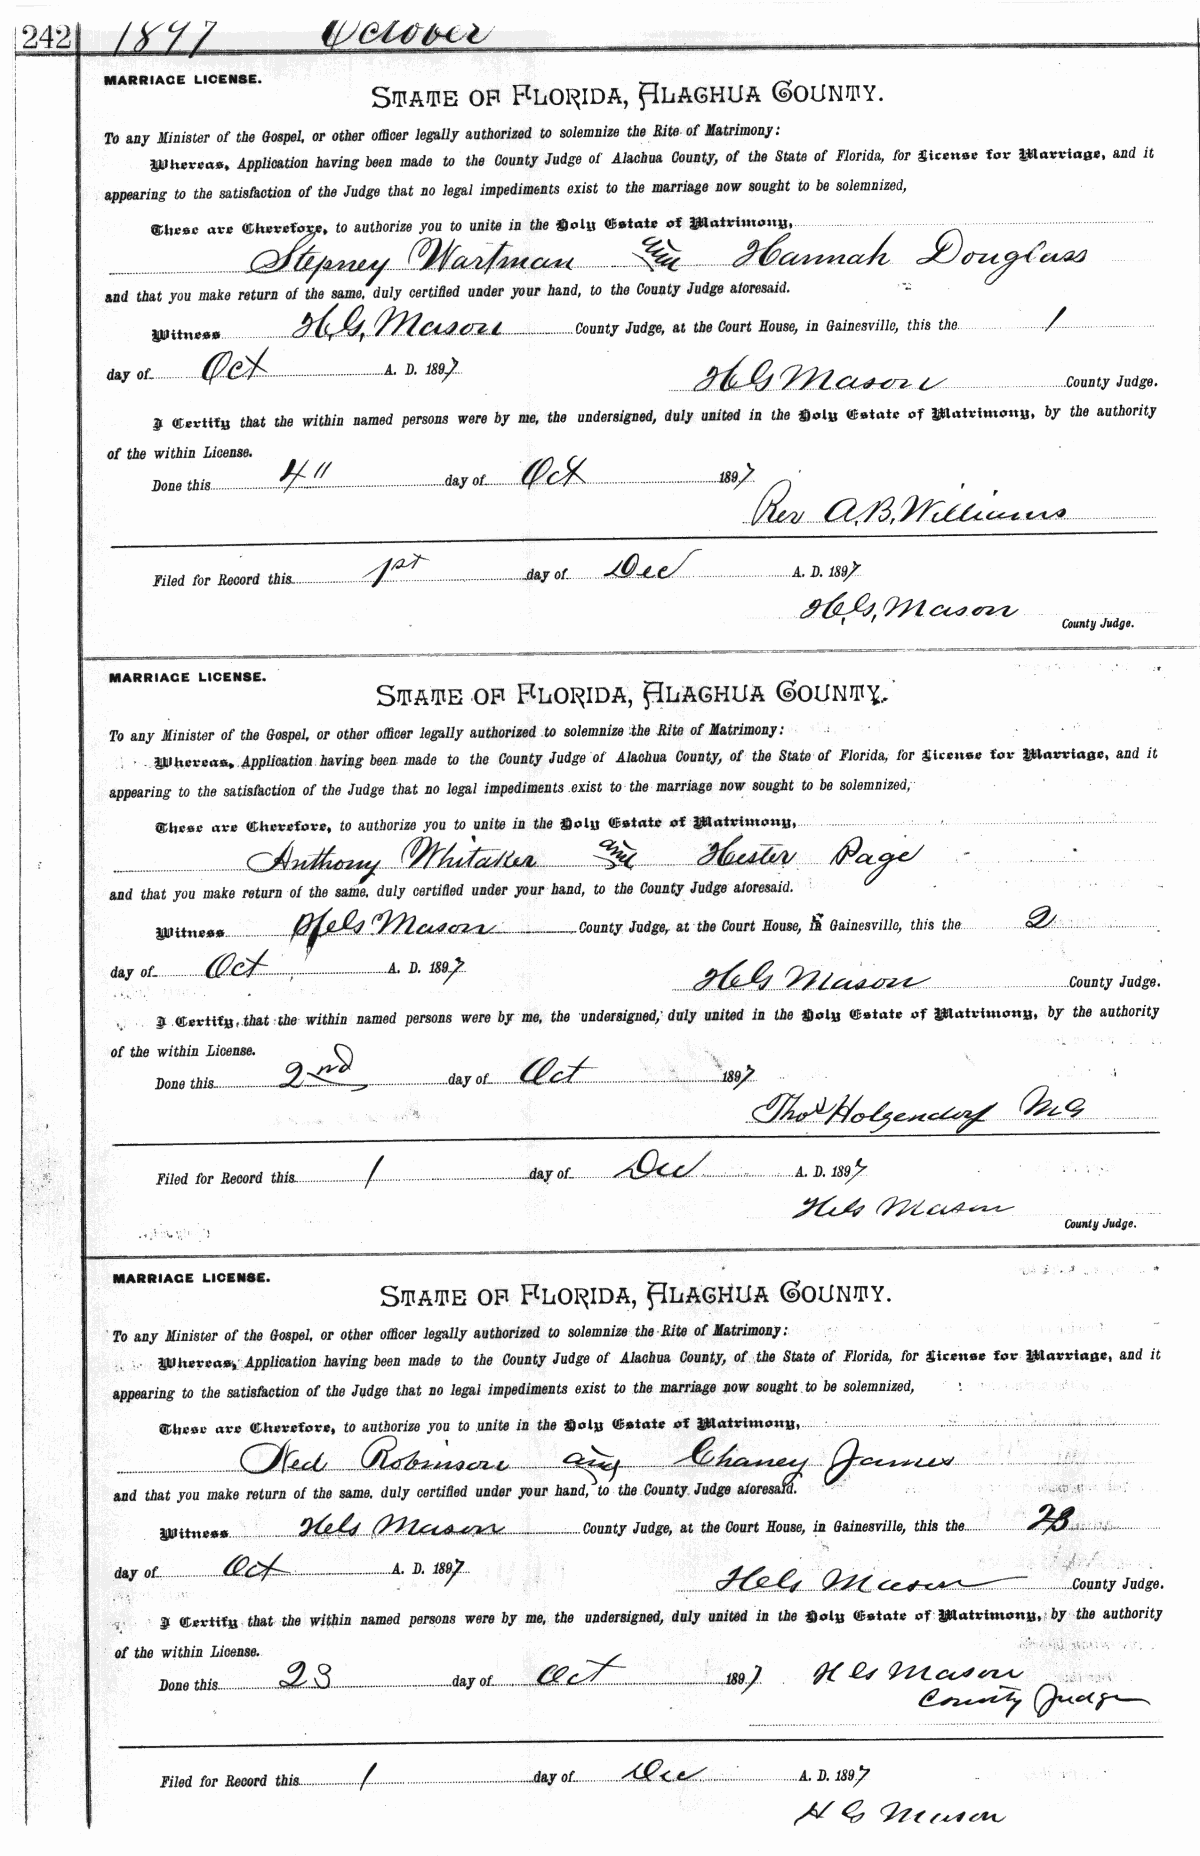 242 1897 October
MARRIAGE LICENSE.
STATE OF FLORIDA, ALACHUA COUNTY.
To any Minister of the Gospel, or other officer legally authorized to solemnize the Rite of Matrimony:
Whereas, Application having been made to the County Judge of Alachua County, of the State of Florida, for License for Marriage, and it
appearing to the satisfaction of the Judge that no legal impediments exist to the marriage now sought to be solemnized,
These are Therefore, to authorize you to unite in the Holy Estate of Matrimony,
Stepney Wartman and Hannah Douglass
and that you make return of the same, duly certified under your hand, to the County Judge aforesaid.
Witness H. G. Mason County Judge, at the Court House, in Gainesville, this the 1
day of Oct A. D. 1897
H G Mason County Judge.
I Certify that the within named persons were by me, the undersigned, duly united in the Holy Estate of Matrimony, by the authority
of the within License.
Done this 4" day of Oct 1897
Rev A. B. Williams
Filed for Record this 1st day of Dec A. D. 1897
H. G. Mason
County Judge.
MARRIAGE LICENSE.
STATE OF FLORIDA, ALACHUA COUNTY.
To any Minister of the Gospel, or other officer legally authorized to solemnize the Rite of Matrimony:
Whereas, Application having been made to the County Judge of Alachua County, of the State of Florida, for License for Marriage, and it
appearing to the satisfaction of the Judge that no legal impediments exist to the marriage now sought to be solemnized,
These are Therefore, to authorize you to unite in the Holy Estate of Matrimony,
Anthony Whitaker and Hester Page
and that you make return of the same, duly certified under your hand, to the County Judge aforesaid.
Witness H G Mason County Judge, at the Court House, in Gainesville, this the 2
day of Oct A. D. 1897
H G Mason County Judge.
I Certify, that the within named persons were by me, the undersigned, duly united in the Holy Estate of Matrimony, by the authority
of the within License.
Done this 2nd day of Oct 1897
Thos Holzendorf M G
Filed for Record this 1 day of Dec A. D. 1897
H G Mason
County Judge.
MARRIAGE LICENSE.
STATE OF FLORIDA, ALACHUA COUNTY.
To any Minister of the Gospel, or other officer legally authorized to solemnize the Rite of Matrimony:
Whereas, Application having been made to the County Judge of Alachua County, of the State of Florida, for License for Marriage, and it
appearing to the satisfaction of the Judge that no legal impediments exist to the marriage now sought to be solemnized,
These are Therefore, to authorize you to unite in the Holy Estate of Matrimony,
Ned Robinson and Chaney James
and that you make return of the same, duly certified under your hand, to the County Judge aforesaid.
Witness H G Mason County Judge, at the Court House, in Gainesville, this the 23
day of Oct A. D. 1897
H G Mason County Judge.
I Certify that the within named persons were by me, the undersigned, duly united in the Holy Estate of Matrimony, by the authority
of the within License.
Done this 23 day of Oct 1897 H G Mason
County Judge
Filed for Record this 1 day of Dec A. D. 1897
H G Mason